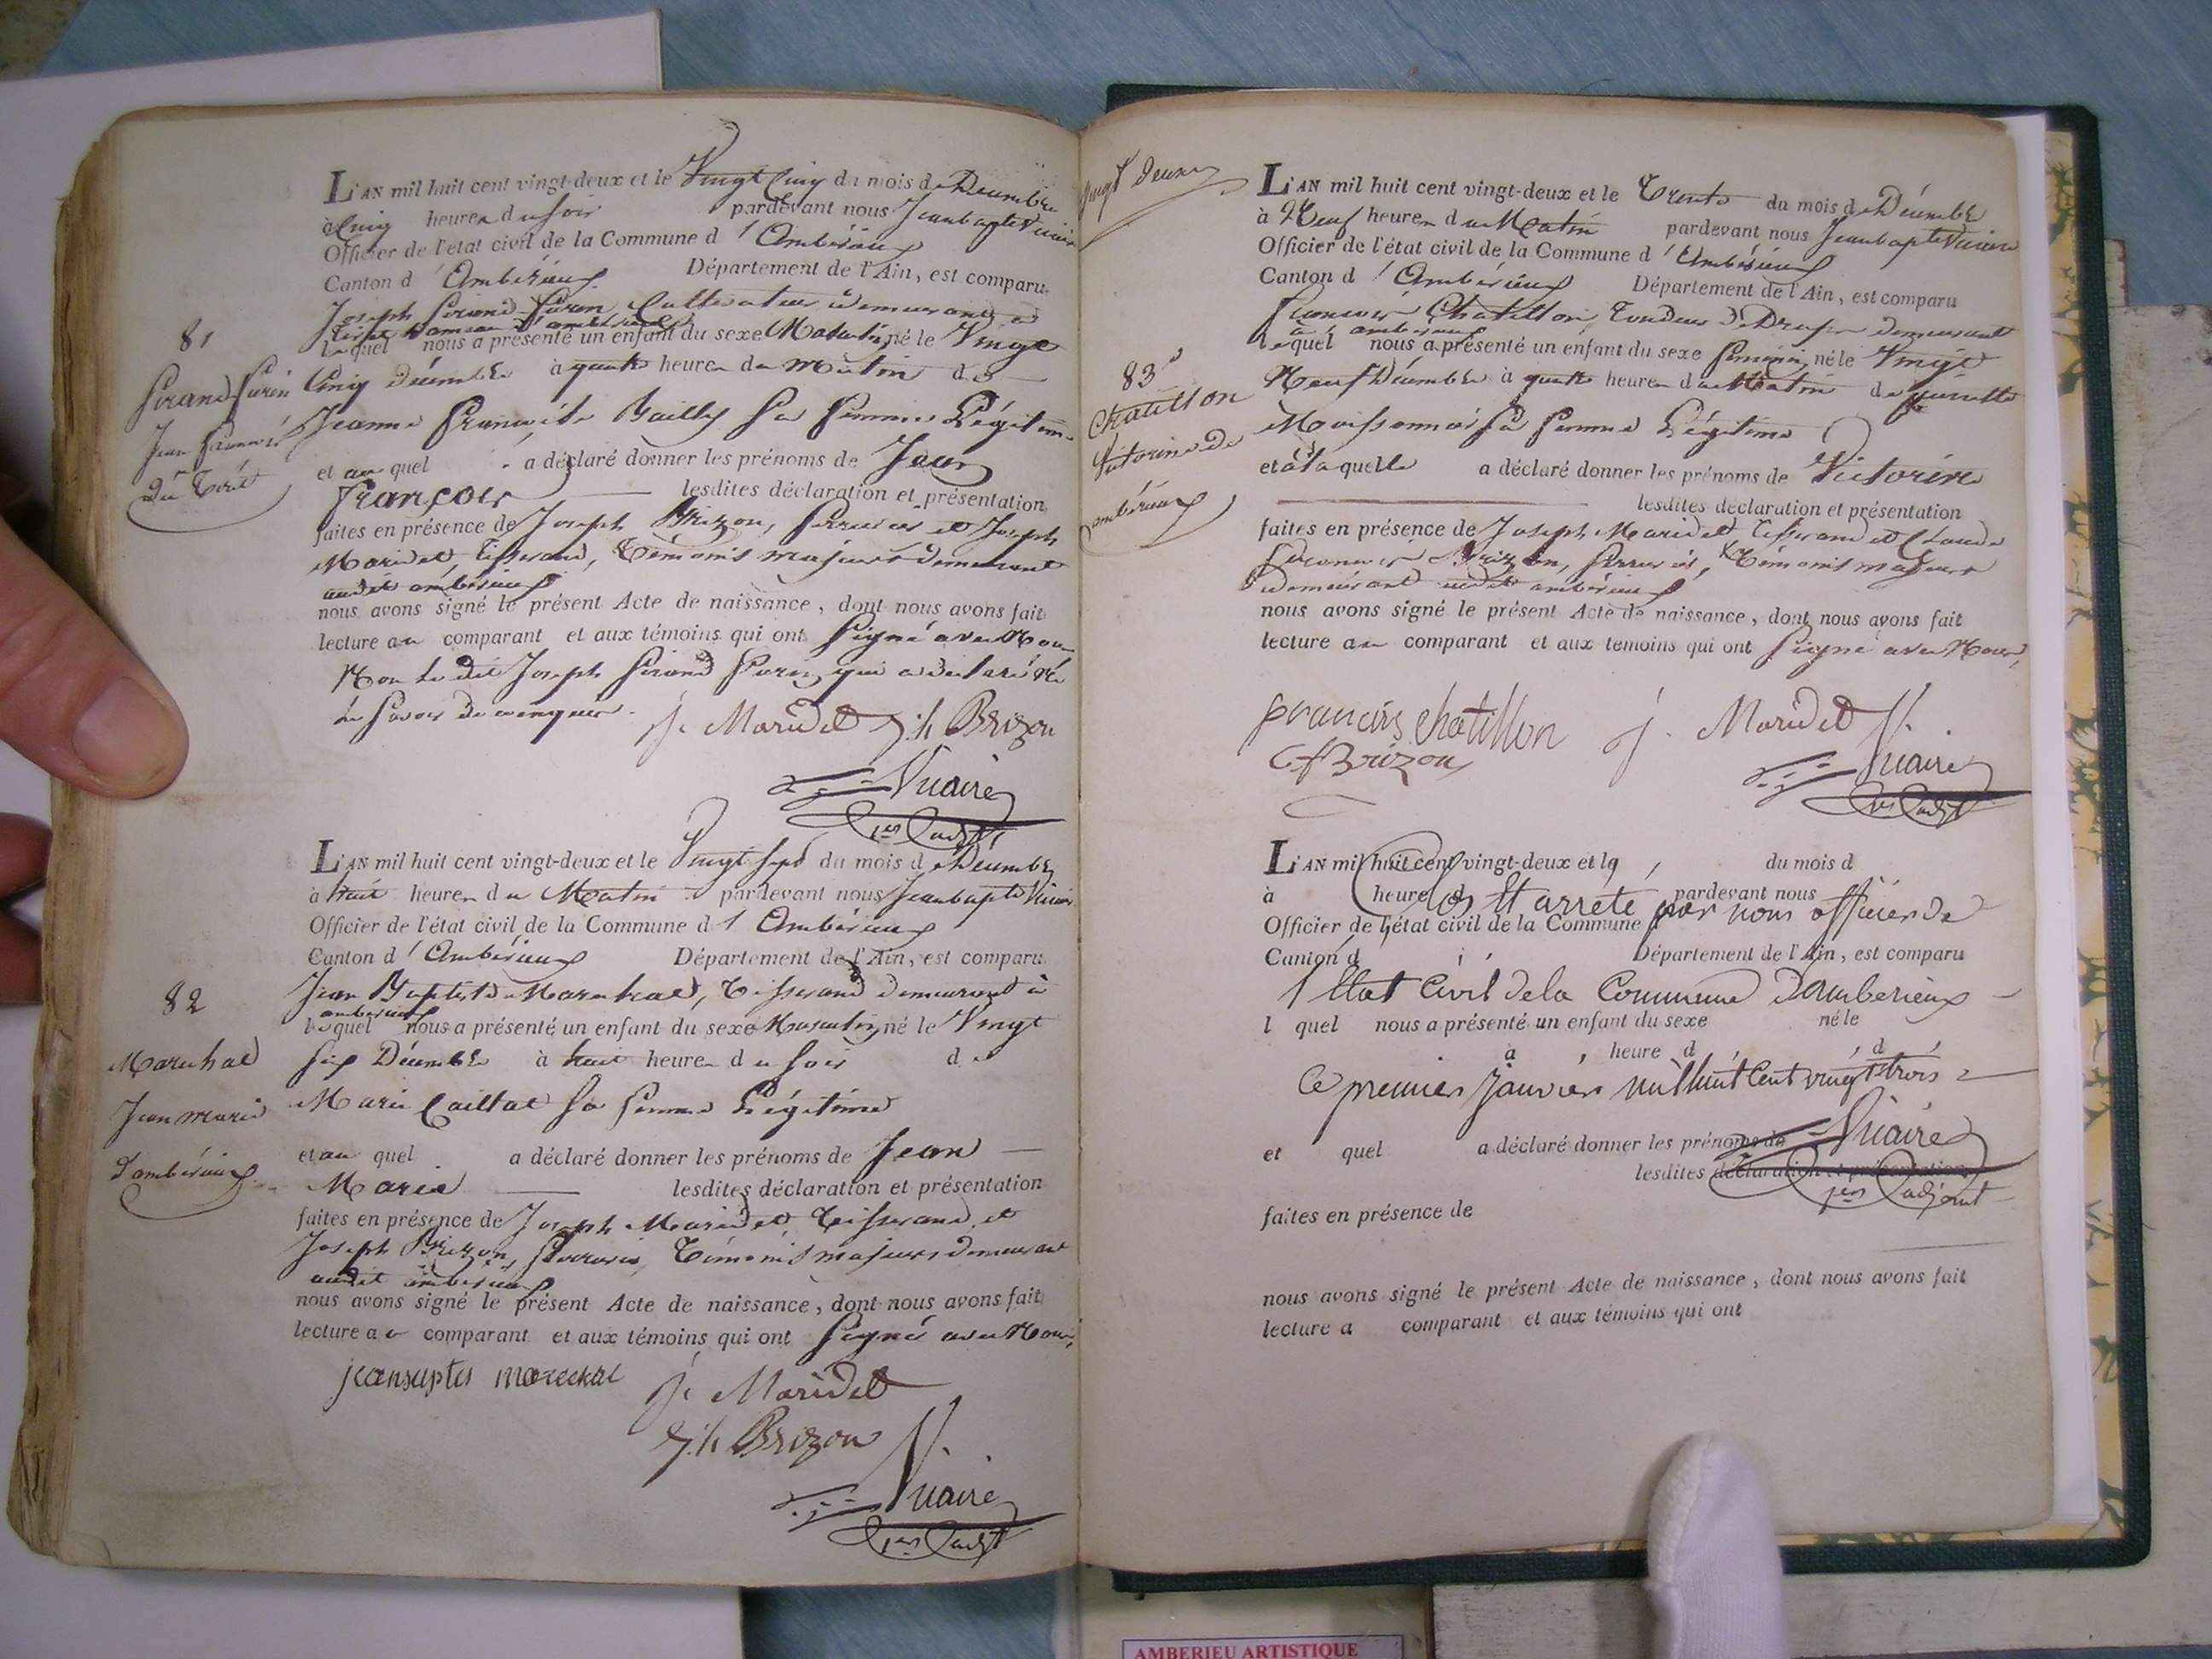 L'AN mil huit cent vingt-deux et le Vingt Cinq du mois de Décembre
à Cinq heures du Soir pardevant nous Jean baptte Vicaire
Officier de l'état civil de la Commune d'Ambérieux
Canton d'Ambérieux Département de l'Ain, est comparu
Joseph Girand Cultivateur demeurant à
hameau d'ambérieux
lequel nous a présenté un enfant du sexe Masculin, né le Vingt
Cinq Décembre à quatre heures du Matin de
Jeanne Françoise Bailly Sa femme Légitime
et au quel a déclaré donner les prénoms de Jean
françois lesdites déclaration et présentation
faites en présence de Joseph Brizon, Serrurier et Joseph
Maridet, Tisserand, Témoins majeurs demeurant
audit ambérieux
nous avons signé le présent Acte de naissance, dont nous avons fait
lecture au comparant et aux témoins qui ont Signé avec Nous
Non le dit Joseph qui a déclaré Ne
le Savoir de ce enquis.
J. Maridet J.h Brizon
Vicaire
1er adjt
81
Jean François
du Tiret
L'AN mil huit cent vingt-deux et le Vingt Sept du mois de Décembre
à huit heures du Matin pardevant nous Jean bapte Vicaire
Officier de l'état civil de la Commune d'Ambérieux
Canton d'Ambérieux Département de l'Ain, est comparu
Jean Baptiste Marechal, Tisserand demeurant à
ambérieux
lequel nous a présenté un enfant du sexe Masculin, né le Vingt
Six Décembre à huit heures du Soir de
Marie Cailtat Sa femme Légitime
et au quel a déclaré donner les prénoms de Jean
Marie lesdites déclaration et présentation
faites en présence de Joseph Maridet, Tisserand, et
Joseph Brizon, Serrurier, Témoins majeurs demeurant
audit ambérieux
nous avons signé le présent Acte de naissance, dont nous avons fait
lecture au comparant et aux témoins qui ont Signé avec Nous,
jeanbaptis marechal J. Maridet
J.h Brizon
Vicaire
1er adjt
82
Marechal
Jean marie
d'ambérieux
Vingt Deux
L'AN mil huit cent vingt-deux et le Trente du mois de Décembre
à Neuf heures du Matin pardevant nous Jean bapte Vicaire
Officier de l'état civil de la Commune d'Ambérieux
Canton d'Ambérieux Département de l'Ain, est comparu
François Chatillon, Tondeur de Draps demeurant
à ambérieux
lequel nous a présenté un enfant du sexe féminin, né le Vingt
Neuf Décembre à quatre heures du Matin de pierrette
Moissonnier Sa femme Légitime
et à laquelle a déclaré donner les prénoms de Victorine
lesdites déclaration et présentation
faites en présence de Joseph Maridet, Tisserand et Claude
François Brizon, Serrurier, Témoins majeurs
demeurant audit ambérieux
nous avons signé le présent Acte de naissance, dont nous avons fait
lecture au comparant et aux témoins qui ont Signé avec Nous,
francois chatillon J. Maridet
CfBrizon
Vicaire
1er adjt
83
Chatillon
Victorine de
ambérieux
L'AN mil huit cent vingt-deux et le du mois d
à heure d pardevant nous
Clos et arrété par nous officier de
Officier de l'état civil de la Commune
Canton d Département de l'Ain, est comparu
l'Etat Civil de la Commune D'amberieux
l quel nous a présenté un enfant du sexe né le
à heure d d
Ce premier janvier mil huit Cent vingt trois
et quel a déclaré donner les prénoms de
Vicaire
lesdites déclaration et présentation
1er adjoint
faites en présence de
nous avons signé le présent Acte de naissance, dont nous avons fait
lecture a comparant et aux témoins qui ont
AMBERIEU ARTISTIQUE